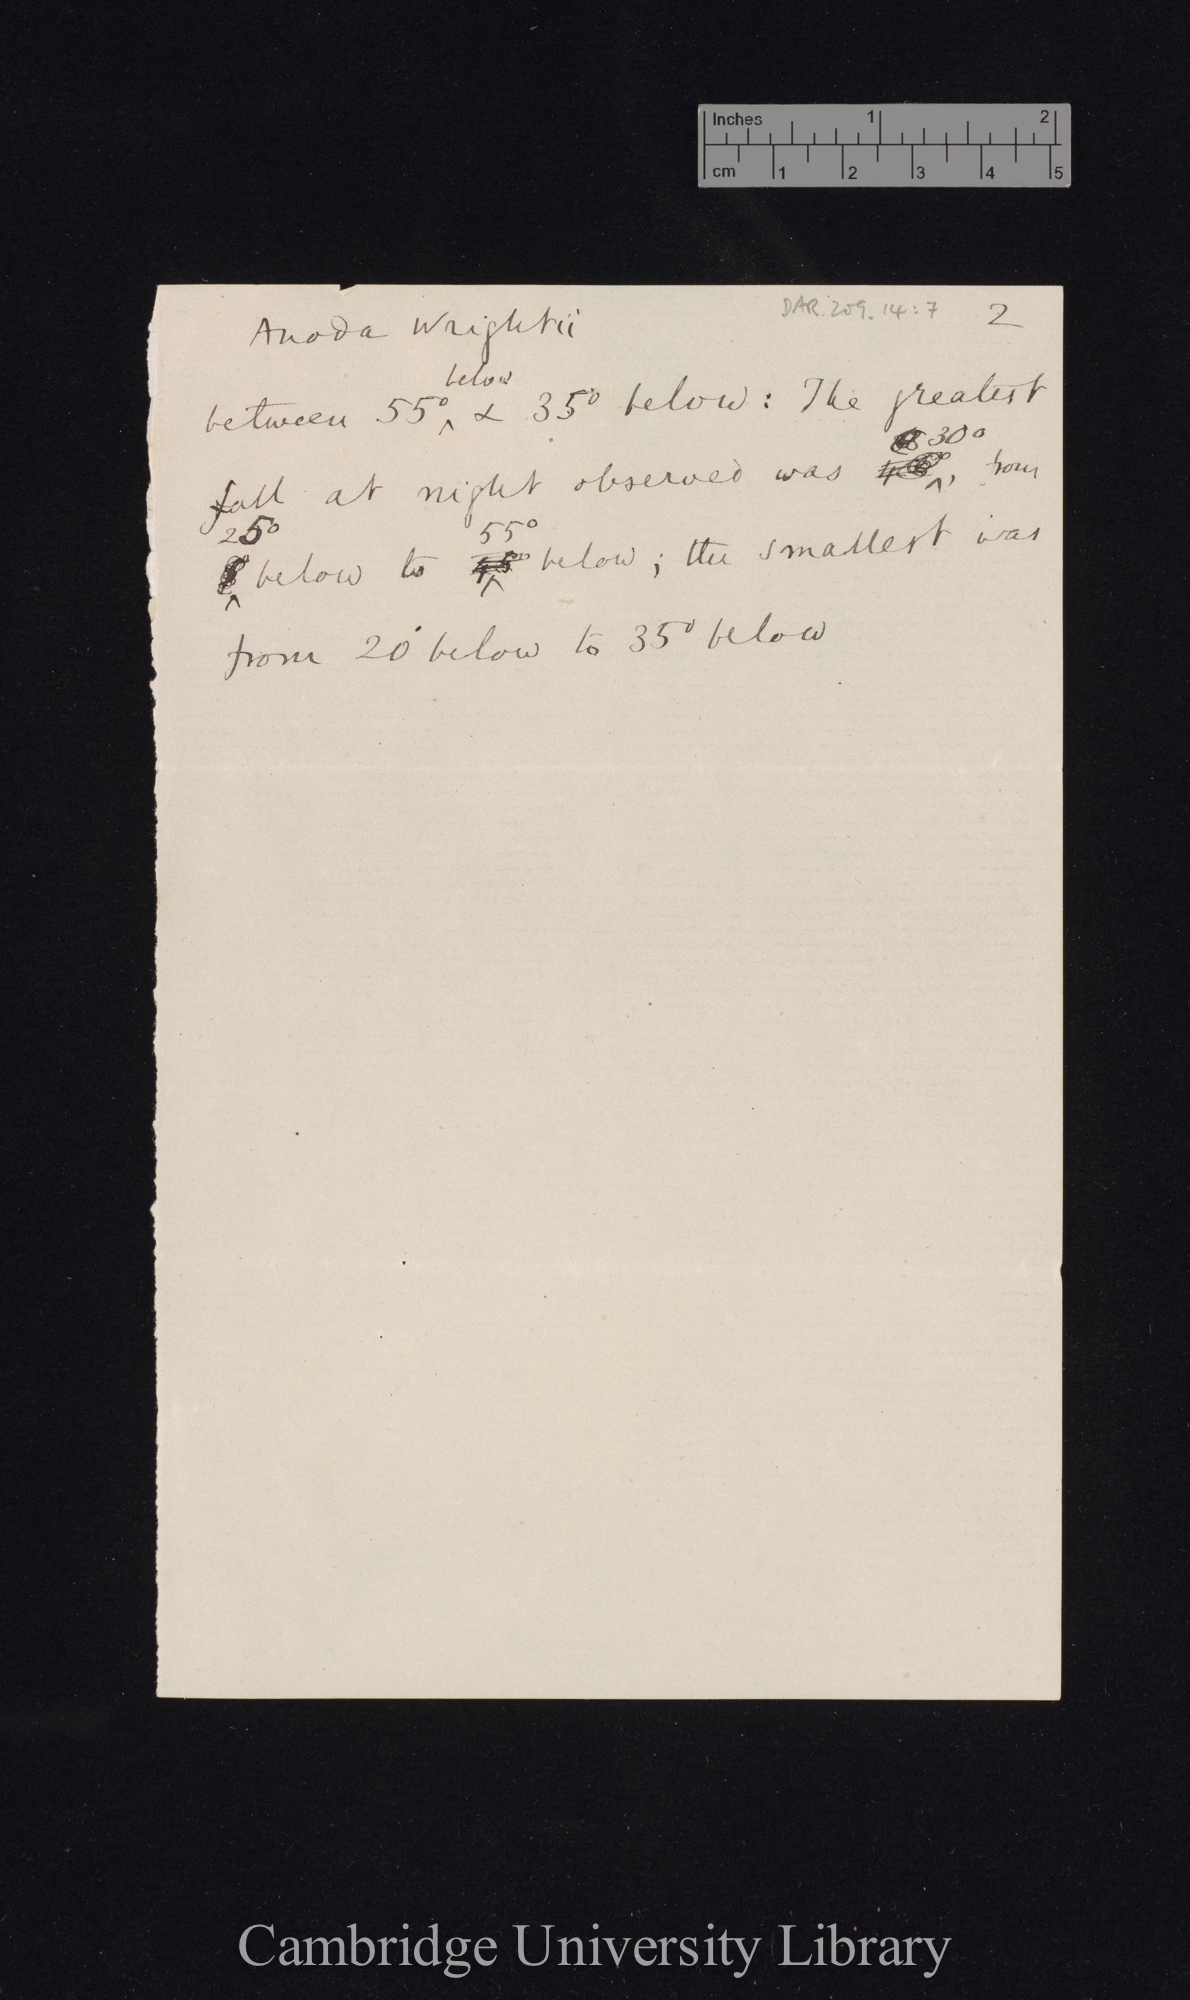 Inches 1 2
cm 1 2 3 4 5
DAR.209.14:7 2
Anoda Wrightii
below
between 55° ^ & 35° below: The greatest
30°
fall at night observed was ^, from
25° 55°
^ below to 45° ^ below; the smallest was
from 20° below to 35° below
Cambridge University Library